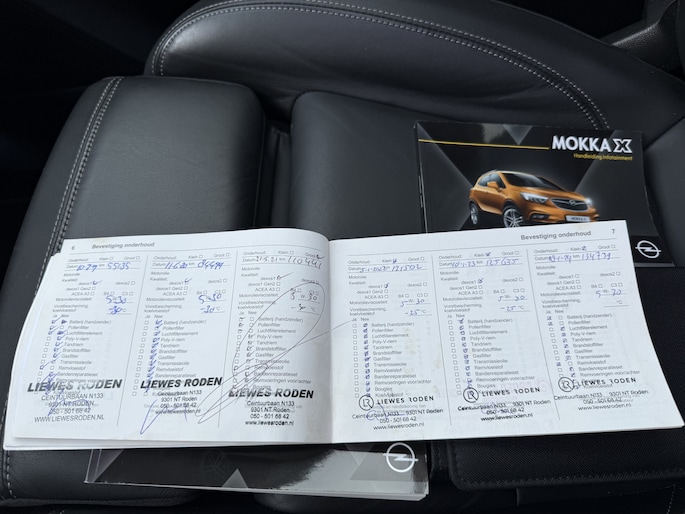 MOKKA X
Handleiding Infotainment
6 Bevestiging onderhoud
Onderhoud: Klein Groot
Datum
55135
Motorolie
Kwaliteit:
dexos1
dexos1 Gen2
ACEA A3 B4 C3
Motorolieviscositeit
5-30
Vorstbescherming
Koelvloeistof
-30°C
Ja Nee
Batterij (handzender)
Pollenfilter
Luchtfilterelement
Poly-V-riem
Tandriem
Brandstoffilter
Gasfilter
Transmissieolie
Remvloeistof
LIEWES RODEN
Ceintuurbaan N133
9301 NT RODEN
050 - 501 68 42
WWW.LIEWESRODEN.NL
Onderhoud: Klein Groot
Datum
Motorolie
Kwaliteit:
dexos1
dexos1 Gen2
ACEA A3 B4 C3
Motorolieviscositeit
5-30
Vorstbescherming
Koelvloeistof
-30°C
Ja Nee
Batterij (handzender)
Pollenfilter
Luchtfilterelement
Poly-V-riem
Tandriem
Brandstoffilter
Gasfilter
Transmissieolie
Remvloeistof
Bandenreparatieset
LIEWES RODEN
Ceintuurbaan N133
9301 NT Roden
050 - 501 68 42
Onderhoud: Klein Groot
Datum
110441
Motorolie
Kwaliteit:
dexos1
dexos1 Gen2
ACEA A3 B4 C3
Motorolieviscositeit
5-30
Vorstbescherming
Koelvloeistof
Ja Nee
Batterij (handzender)
Pollenfilter
Luchtfilterelement
Poly-V-riem
Tandriem
Brandstoffilter
Gasfilter
Transmissieolie
Remvloeistof
Bandenreparatieset
Remvoeringen voor/achter
LIEWES RODEN
Ceintuurbaan N133
9301 NT Roden
050 - 501 68 42
www.liewesroden.nl
Bevestiging onderhoud 7
Onderhoud: Klein Groot
Datum
121502
Motorolie
Kwaliteit:
dexos1
dexos1 Gen2
ACEA A3 B4 C3
Motorolieviscositeit
5-30
Vorstbescherming
Koelvloeistof
-25°C
Ja Nee
Batterij (handzender)
Pollenfilter
Luchtfilterelement
Poly-V-riem
Tandriem
Brandstoffilter
Gasfilter
Transmissieolie
Remvloeistof
Bandenreparatieset
Remvoeringen voor/achter
Bougies
LR LIEWES RODEN
Ceintuurbaan N133 9301 NT Roden
050 - 501 68 42
www.liewesroden.nl
Onderhoud: Klein Groot
Datum
125635
Motorolie
Kwaliteit:
dexos1
dexos1 Gen2
ACEA A3 B4 C3
Motorolieviscositeit
5-30
Vorstbescherming
Koelvloeistof
-25°C
Ja Nee
Batterij (handzender)
Pollenfilter
Luchtfilterelement
Poly-V-riem
Tandriem
Brandstoffilter
Gasfilter
Transmissieolie
Remvloeistof
Bandenreparatieset
Remvoeringen voor/achter
Bougies
LR LIEWES RODEN
Ceintuurbaan N133 9301 NT Roden
050 - 501 68 42
www.liewesroden.nl
Onderhoud: Klein Groot
Datum
134739
Motorolie
Kwaliteit:
dexos1
dexos1 Gen2
ACEA A3 B4 C3
Motorolieviscositeit
Vorstbescherming
Koelvloeistof
Ja Nee
Batterij (handzender)
Pollenfilter
Luchtfilterelement
Poly-V-riem
Tandriem
Brandstoffilter
Gasfilter
Transmissieolie
Remvloeistof
Bandenreparatieset
Remvoeringen voor/achter
LR LIEWES RODEN
Ceintuurbaan N133 9301 NT Roden
050 - 501 68 42
www.liewesroden.nl